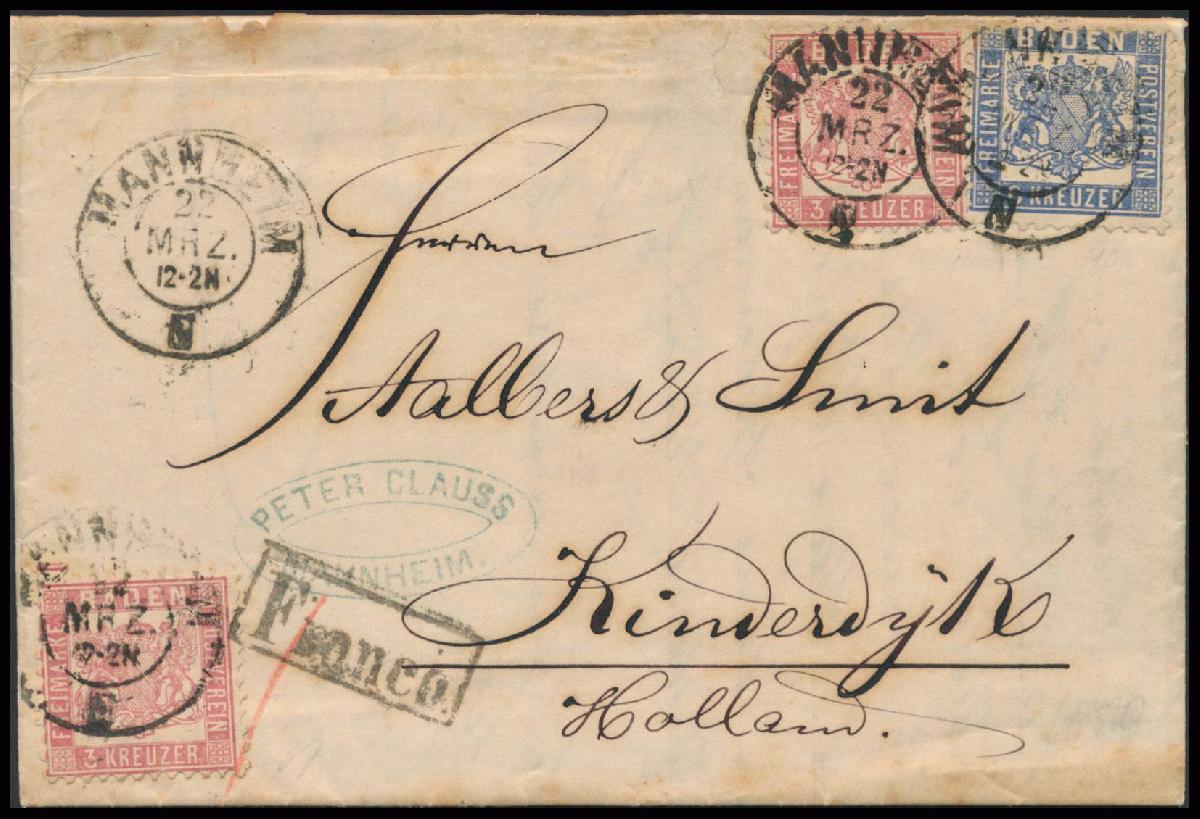 MANNHEIM
22
MRZ.
12-2N
N
MANNHEIM
22
MRZ.
12-2N
FREIMARKE
3 KREUZER
BADEN
FREIMARKE
POSTVEREIN
KREUZER
N
Herren
Aalbers & Smit
PETER CLAUSS
MANNHEIM.
Franco.
Kinderdÿk
Holland.
MANNHEIM
22
MRZ.
12-2N
E
BADEN
FREIMARKE
POSTVEREIN
3 KREUZER